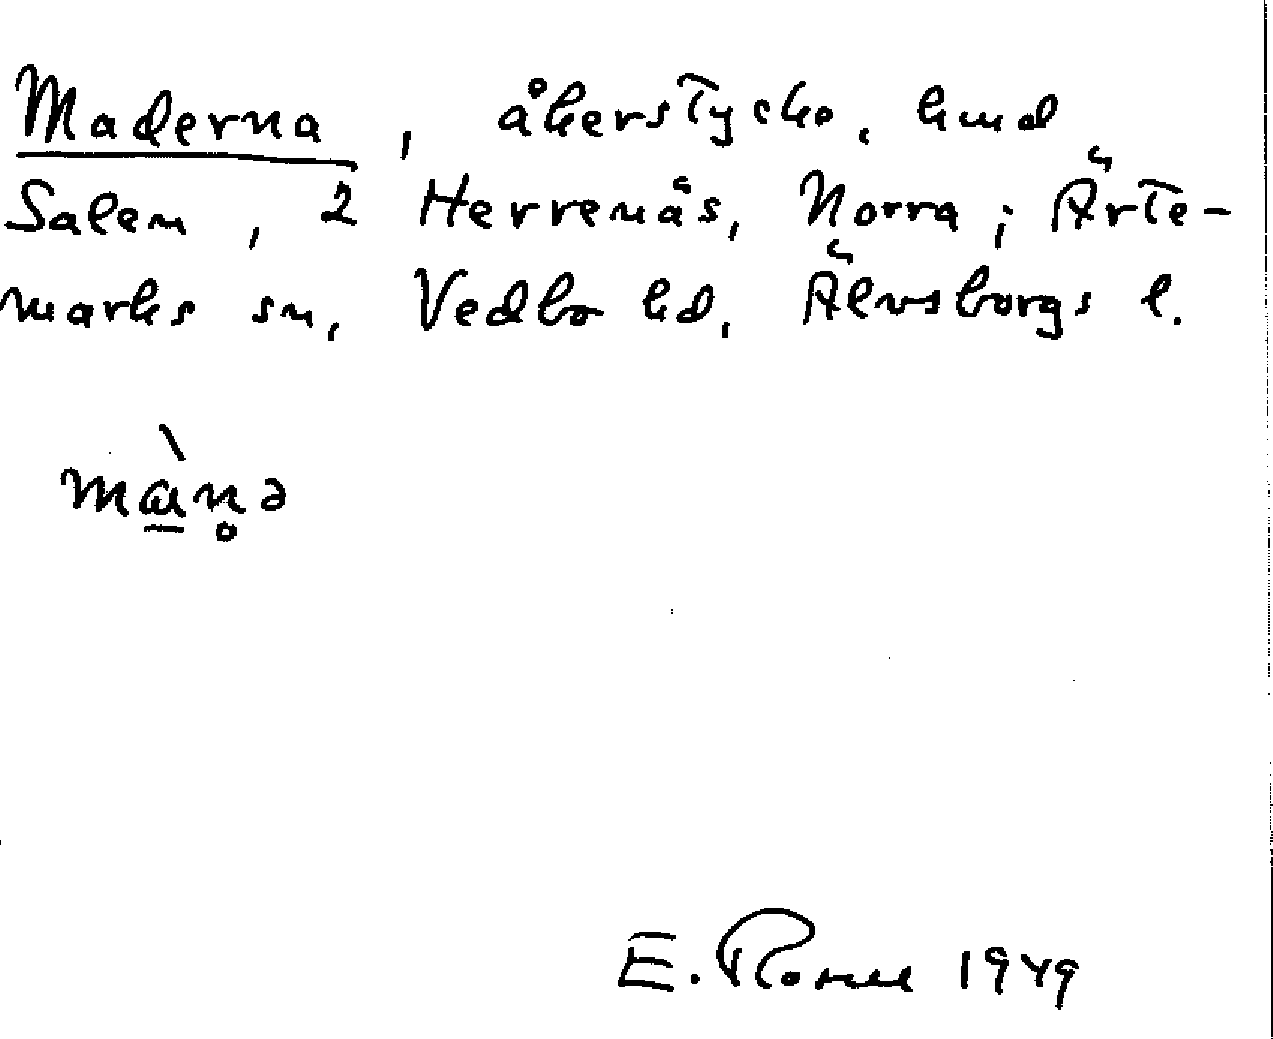 Maderna, åkerstycke, hmd
Salem, 2 Herrenäs, Norra; Ärte-
marks sn, Vedbo hd, Älvsborgs l.
mànə
E. 1949